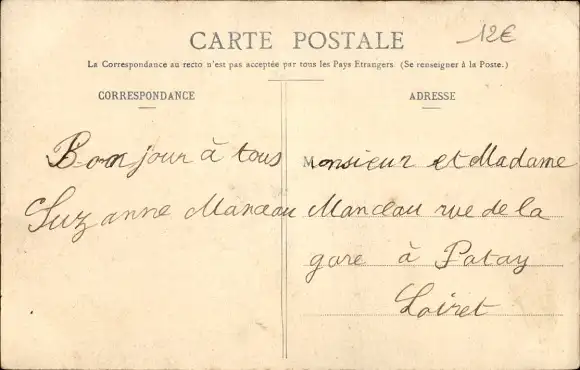 12€
CARTE POSTALE
La Correspondance au recto n'est pas acceptée par tous les Pays Etrangers. (Se renseigner à la Poste.)
CORRESPONDANCE
Bonjour à tous
Suzanne Manceau
ADRESSE
Monsieur et Madame
Manceau rue de la
gare à Patay
Loiret